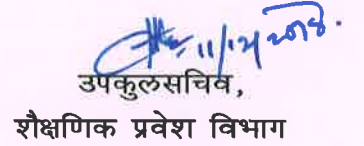 11/12/2018.
उपकुलसचिव,
शैक्षणिक प्रवेश विभाग